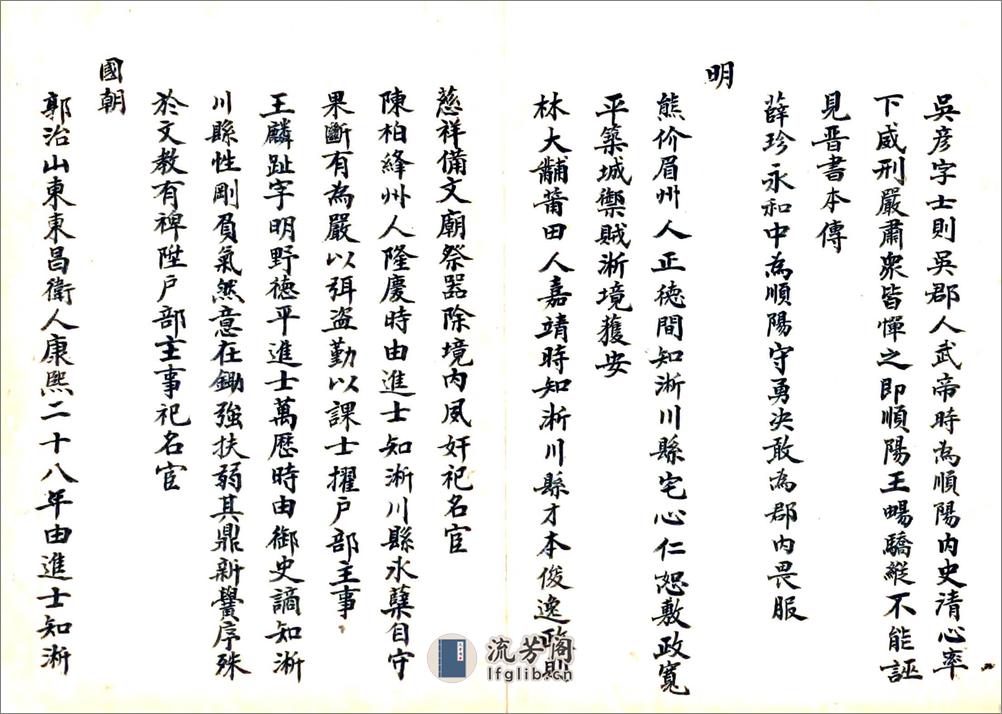 吳彥字士則吳郡人武帝時為順陽内史清心率
下威刑嚴肅衆皆憚之即順陽王暢驕縱不能誣
見晉書本傳
薛珍永和中為順陽守勇决敢為郡内畏服
明
熊价眉州人正德間知淅川縣宅心仁恕敷政寬
平築城禦賊淅境獲安
林大黼莆田人嘉靖時知淅川縣才本俊逸政則
慈祥備文廟祭器除境内風奸祀名宦
陳柏絳州人隆慶時由進士知淅川縣氷蘖自守
果斷有為嚴以弭盗勤以課士擢户部主事
王麟趾字明野德平進士萬歷時由御史謫知淅
川縣性剛負氣然意在鋤強扶弱其鼎新黌序殊
於文教有裨陞户部主事祀名宦
國朝
郭治山東東昌衛人康熙二十八年由進士知淅
流芳阁
lfglib.cn